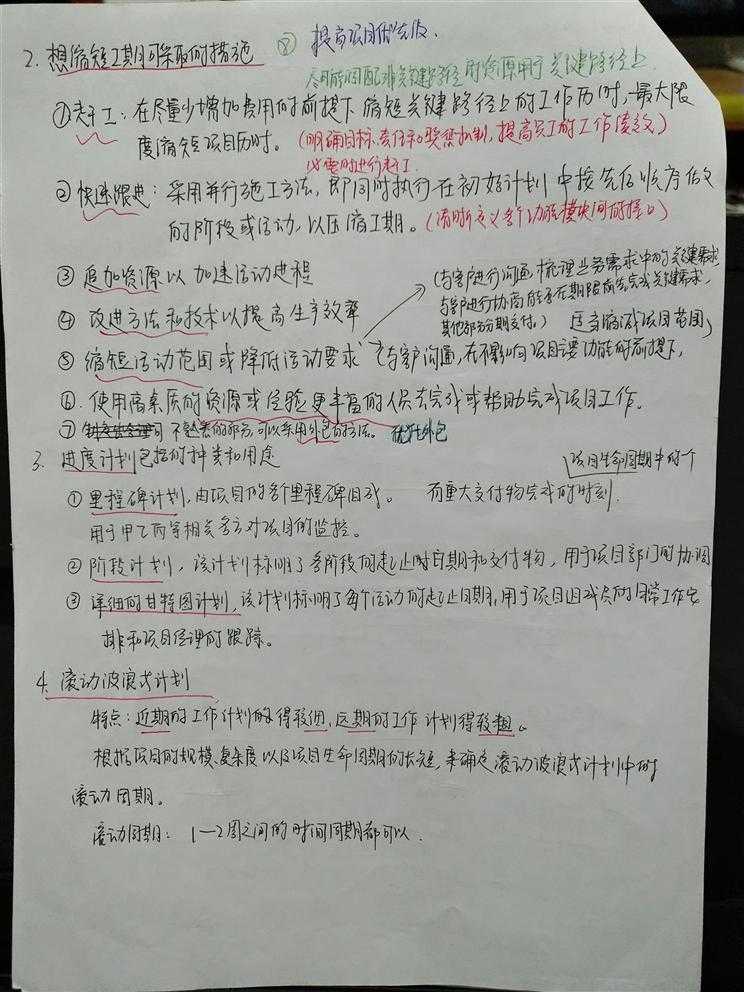 2. 想缩短工期可采取的措施 ⑧ 提高项目优先级.
尽可能调配非关键路径的资源用于关键路径上
①赶工: 在尽量少增加费用的前提下缩短关键路径上的工作历时,最大限
度缩短项目历时。(明确目标、责任和奖惩机制,提高员工的工作绩效)
必要时进行赶工
②快速跟进: 采用并行施工方法, 即同时执行在初始计划中按先后顺序做
的阶段或活动,以压缩工期。(清晰定义各个功能模块间的接口)
③ 追加资源以加速活动进程
④ 改进方法和技术以提高生产效率
(与客户进行沟通梳理业务需求中的关键需求,
与客户进行协商能否在期限前先完成关键需求,
其他部分分期交付。)
⑤ 缩短活动范围或降低活动要求 (与客户沟通,在不影响项目主要功能的前提下,
适当缩减项目范围)
⑥. 使用高素质的资源或经验更丰富的人员去完成或帮助完成项目工作。
⑦ 不熟悉的部分,可以采用外包的方法。 外包
3. 进度计划包括的种类和用途
① 里程碑计划,由项目的各个里程碑组成。 项目生命周期中的一个
而重大交付物完成的时刻.
用于甲乙丙等相关各方对项目的监控。
② 阶段计划, 该计划标明了各阶段的起止时日期和交付物, 用于项目部门的协调
③ 详细的甘特图计划,该计划标明了每个活动的起止日期,用于项目组成员的日常工作安
排和项目经理的跟踪。
4. 滚动波浪式计划
特点: 近期的工作计划的得较细,远期的工作计划得较粗。
根据项目的规模、复杂度以及项目生命周期的长短,来确定滚动波浪式计划中的
滚动周期。
滚动周期: 1—2周之间的时间周期都可以.